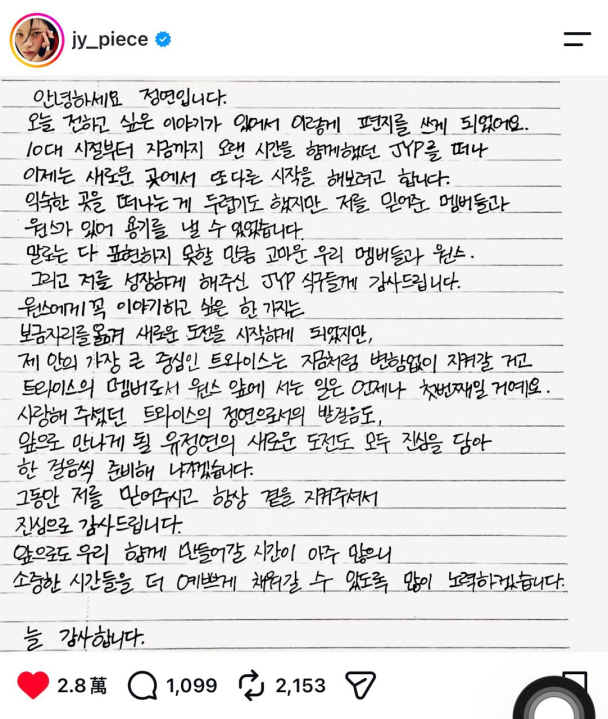 jy_piece
안녕하세요 정연입니다.
오늘 전하고 싶은 이야기가 있어서 이렇게 편지를 쓰게 되었어요.
10대 시절부터 지금까지 오랜 시간을 함께했던 JYP를 떠나
이제는 새로운 곳에서 또다른 시작을 해보려고 합니다.
익숙한 곳을 떠나는 게 두렵기도 했지만 저를 믿어준 멤버들과
원스가 있어 용기를 낼 수 있었습니다.
말로는 다 표현하지 못할 만큼 고마운 우리 멤버들과 원스.
그리고 저를 성장하게 해주신 JYP 식구들께 감사드립니다.
원스에게 꼭 이야기하고 싶은 한 가지는
보금자리를 옮겨 새로운 도전을 시작하게 되었지만,
제 안의 가장 큰 중심인 트와이스는 지금처럼 변함없이 지켜갈 거고
트와이스의 멤버로서 원스 앞에 서는 일은 언제나 첫번째일 거예요.
사랑해 주셨던 트와이스의 정연으로서의 발걸음도,
앞으로 만나게 될 유정연의 새로운 도전도 모두 진심을 담아
한 걸음씩 준비해 나가겠습니다.
그동안 저를 믿어주시고 항상 곁을 지켜주셔서
진심으로 감사드립니다.
앞으로도 우리 함께 만들어갈 시간이 아주 많으니
소중한 시간들을 더 예쁘게 채워갈 수 있도록 많이 노력하겠습니다.
늘 감사합니다.
2.8萬 1,099 2,153